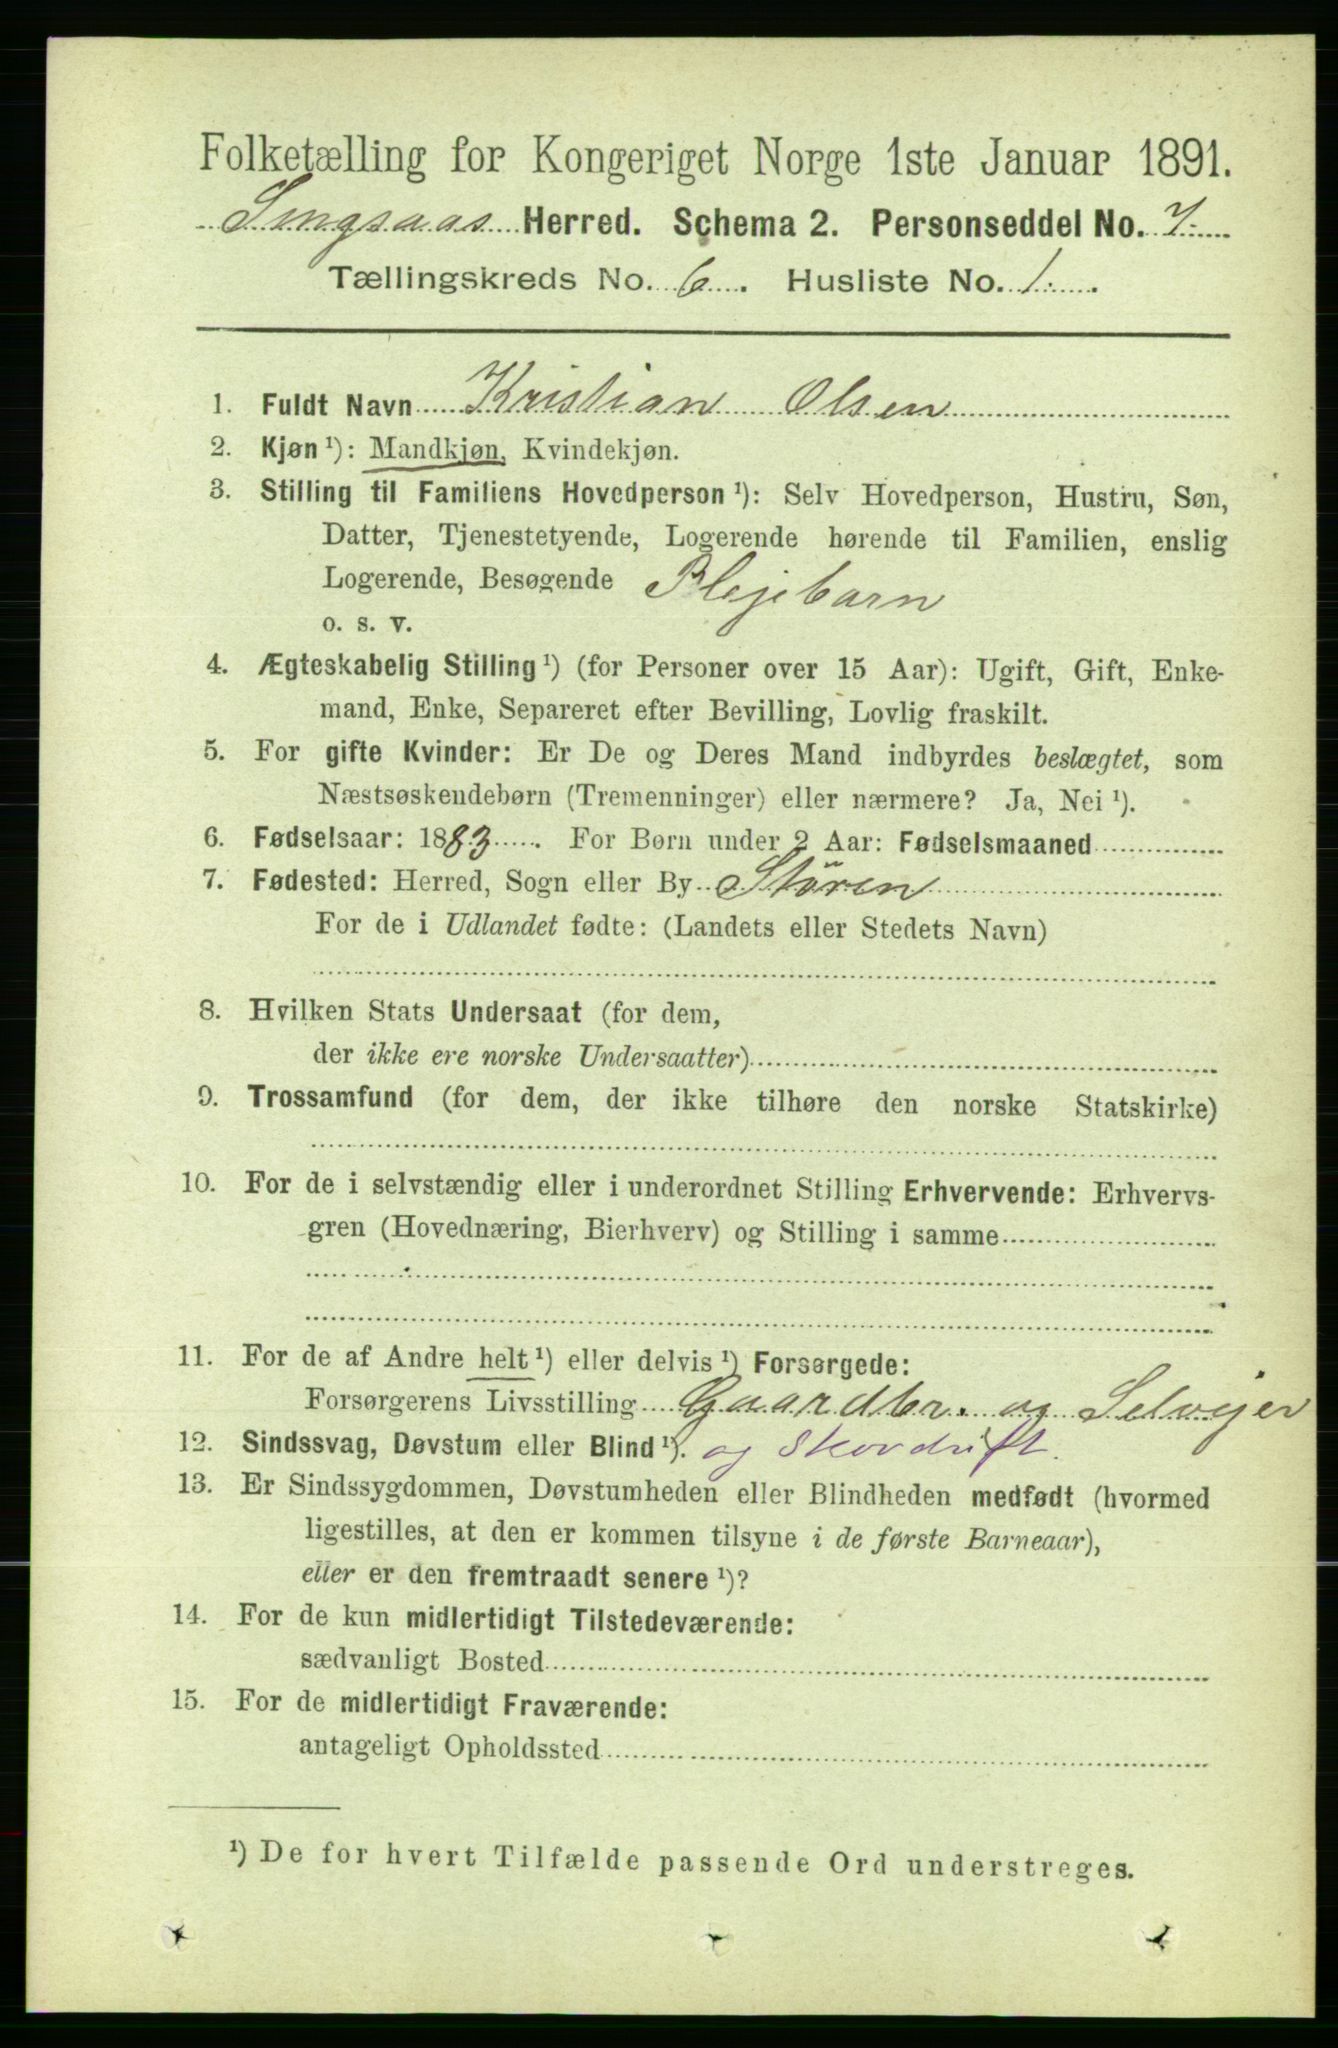 Folketælling for Kongeriget Norge 1ste Januar 1891.
Singsaas Herred. Schema 2. Personseddel No. 7.
Tællingskreds No. 6. Husliste No. 1.
1. Fuldt Navn Kristian Olsen
2. Kjøn ¹): Mandkjøn, Kvindekjøn.
3. Stilling til Familiens Hovedperson ¹): Selv Hovedperson, Hustru, Søn,
Datter, Tjenestetyende, Logerende hørende til Familien, enslig
Logerende, Besøgende Plejebarn
o. s. v.
4. Ægteskabelig Stilling ¹) (for Personer over 15 Aar): Ugift, Gift, Enke-
mand, Enke, Separeret efter Bevilling, Lovlig fraskilt.
5. For gifte Kvinder: Er De og Deres Mand indbyrdes beslægtet, som
Næstsøskendebørn (Tremenninger) eller nærmere? Ja, Nei ¹).
6. Fødselsaar: 1883. For Børn under 2 Aar: Fødselsmaaned
7. Fødested: Herred, Sogn eller By Stören
For de i Udlandet fødte: (Landets eller Stedets Navn)
8. Hvilken Stats Undersaat (for dem,
der ikke ere norske Undersaatter)
9. Trossamfund (for dem, der ikke tilhøre den norske Statskirke)
10. For de i selvstændig eller i underordnet Stilling Erhvervende: Erhvervs-
gren (Hovednæring, Bierhverv) og Stilling i samme
11. For de af Andre helt ¹) eller delvis ¹) Forsørgede:
Forsørgerens Livsstilling Gaardbr. og Selvejer
12. Sindssvag, Døvstum eller Blind ¹). og Skovdrift.
13. Er Sindssygdommen, Døvstumheden eller Blindheden medfødt (hvormed
ligestilles, at den er kommen tilsyne i de første Barneaar),
eller er den fremtraadt senere ¹)?
14. For de kun midlertidigt Tilstedeværende:
sædvanligt Bosted
15. For de midlertidigt Fraværende:
antageligt Opholdssted
¹) De for hvert Tilfælde passende Ord understreges.